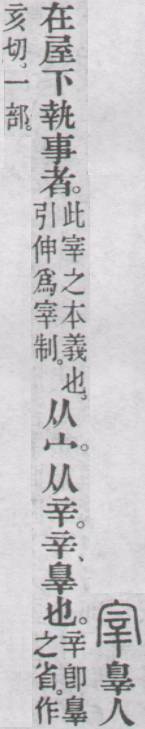 宰辠人
在屋下執事者。此宰之本義也,引伸爲宰制。从宀。从辛。辛、辠也。辛卽辠之省。作
亥切。一部。